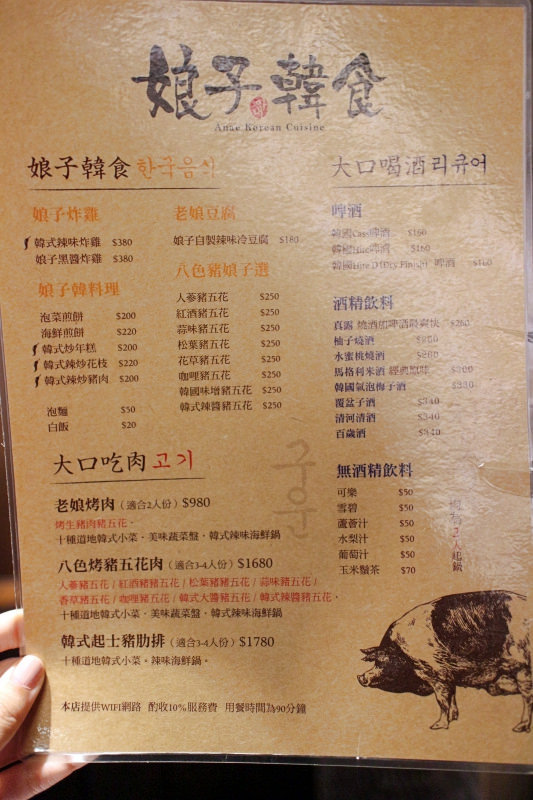 娘子韓食
Anae Korean Cuisine
娘子韓食 한국음식
娘子炸雞
韓式辣味炸雞 $380
娘子黑醬炸雞 $380
娘子韓料理
泡菜煎餅 $200
海鮮煎餅 $220
韓式炒年糕 $200
韓式辣炒花枝 $220
韓式辣炒豬肉 $200
泡麵 $50
白飯 $20
老娘豆腐
娘子自製辣味冷豆腐 $180
八色豬娘子選
人蔘豬五花 $250
紅酒豬五花 $250
蒜味豬五花 $250
松葉豬五花 $250
花草豬五花 $250
咖哩豬五花 $250
韓國味增豬五花 $250
韓式辣醬豬五花 $250
大口喝酒 리큐어
啤酒
韓國Cass啤酒 $160
韓國Hite啤酒 $160
韓國Hite D (Dry Finish) 啤酒 $160
酒精飲料
真露 燒酒加啤酒最爽快
柚子燒酒
水蜜桃燒酒
馬格利米酒 經典原味 $300
韓國氣泡梅子酒
覆盆子酒 $340
清河清酒 $340
百歲酒 $340
無酒精飲料
可樂 $50
雪碧 $50
蘆薈汁 $50
水梨汁 $50
葡萄汁 $50
玉米鬚茶 $70
大口吃肉 고기
구운
老娘烤肉(適合2人份) $980
烤生豬肉豬五花．
十種道地韓式小菜．美味蔬菜盤．韓式辣味海鮮鍋
八色烤豬五花肉(適合3-4人份) $1680
人蔘豬五花 / 紅酒豬豬五花 / 松葉豬豬五花 / 蒜味豬五花 /
香草豬五花 / 咖哩豬五花 / 韓式大醬豬五花 / 韓式辣豬五花．
十種道地韓式小菜．美味蔬菜盤．韓式辣味海鮮鍋
韓式起士豬肋排 (適合3-4人份) $1780
十種道地韓式小菜。辣味海鮮鍋。
本店提供WIFI網路 酌收10%服務費 用餐時間為90分鐘